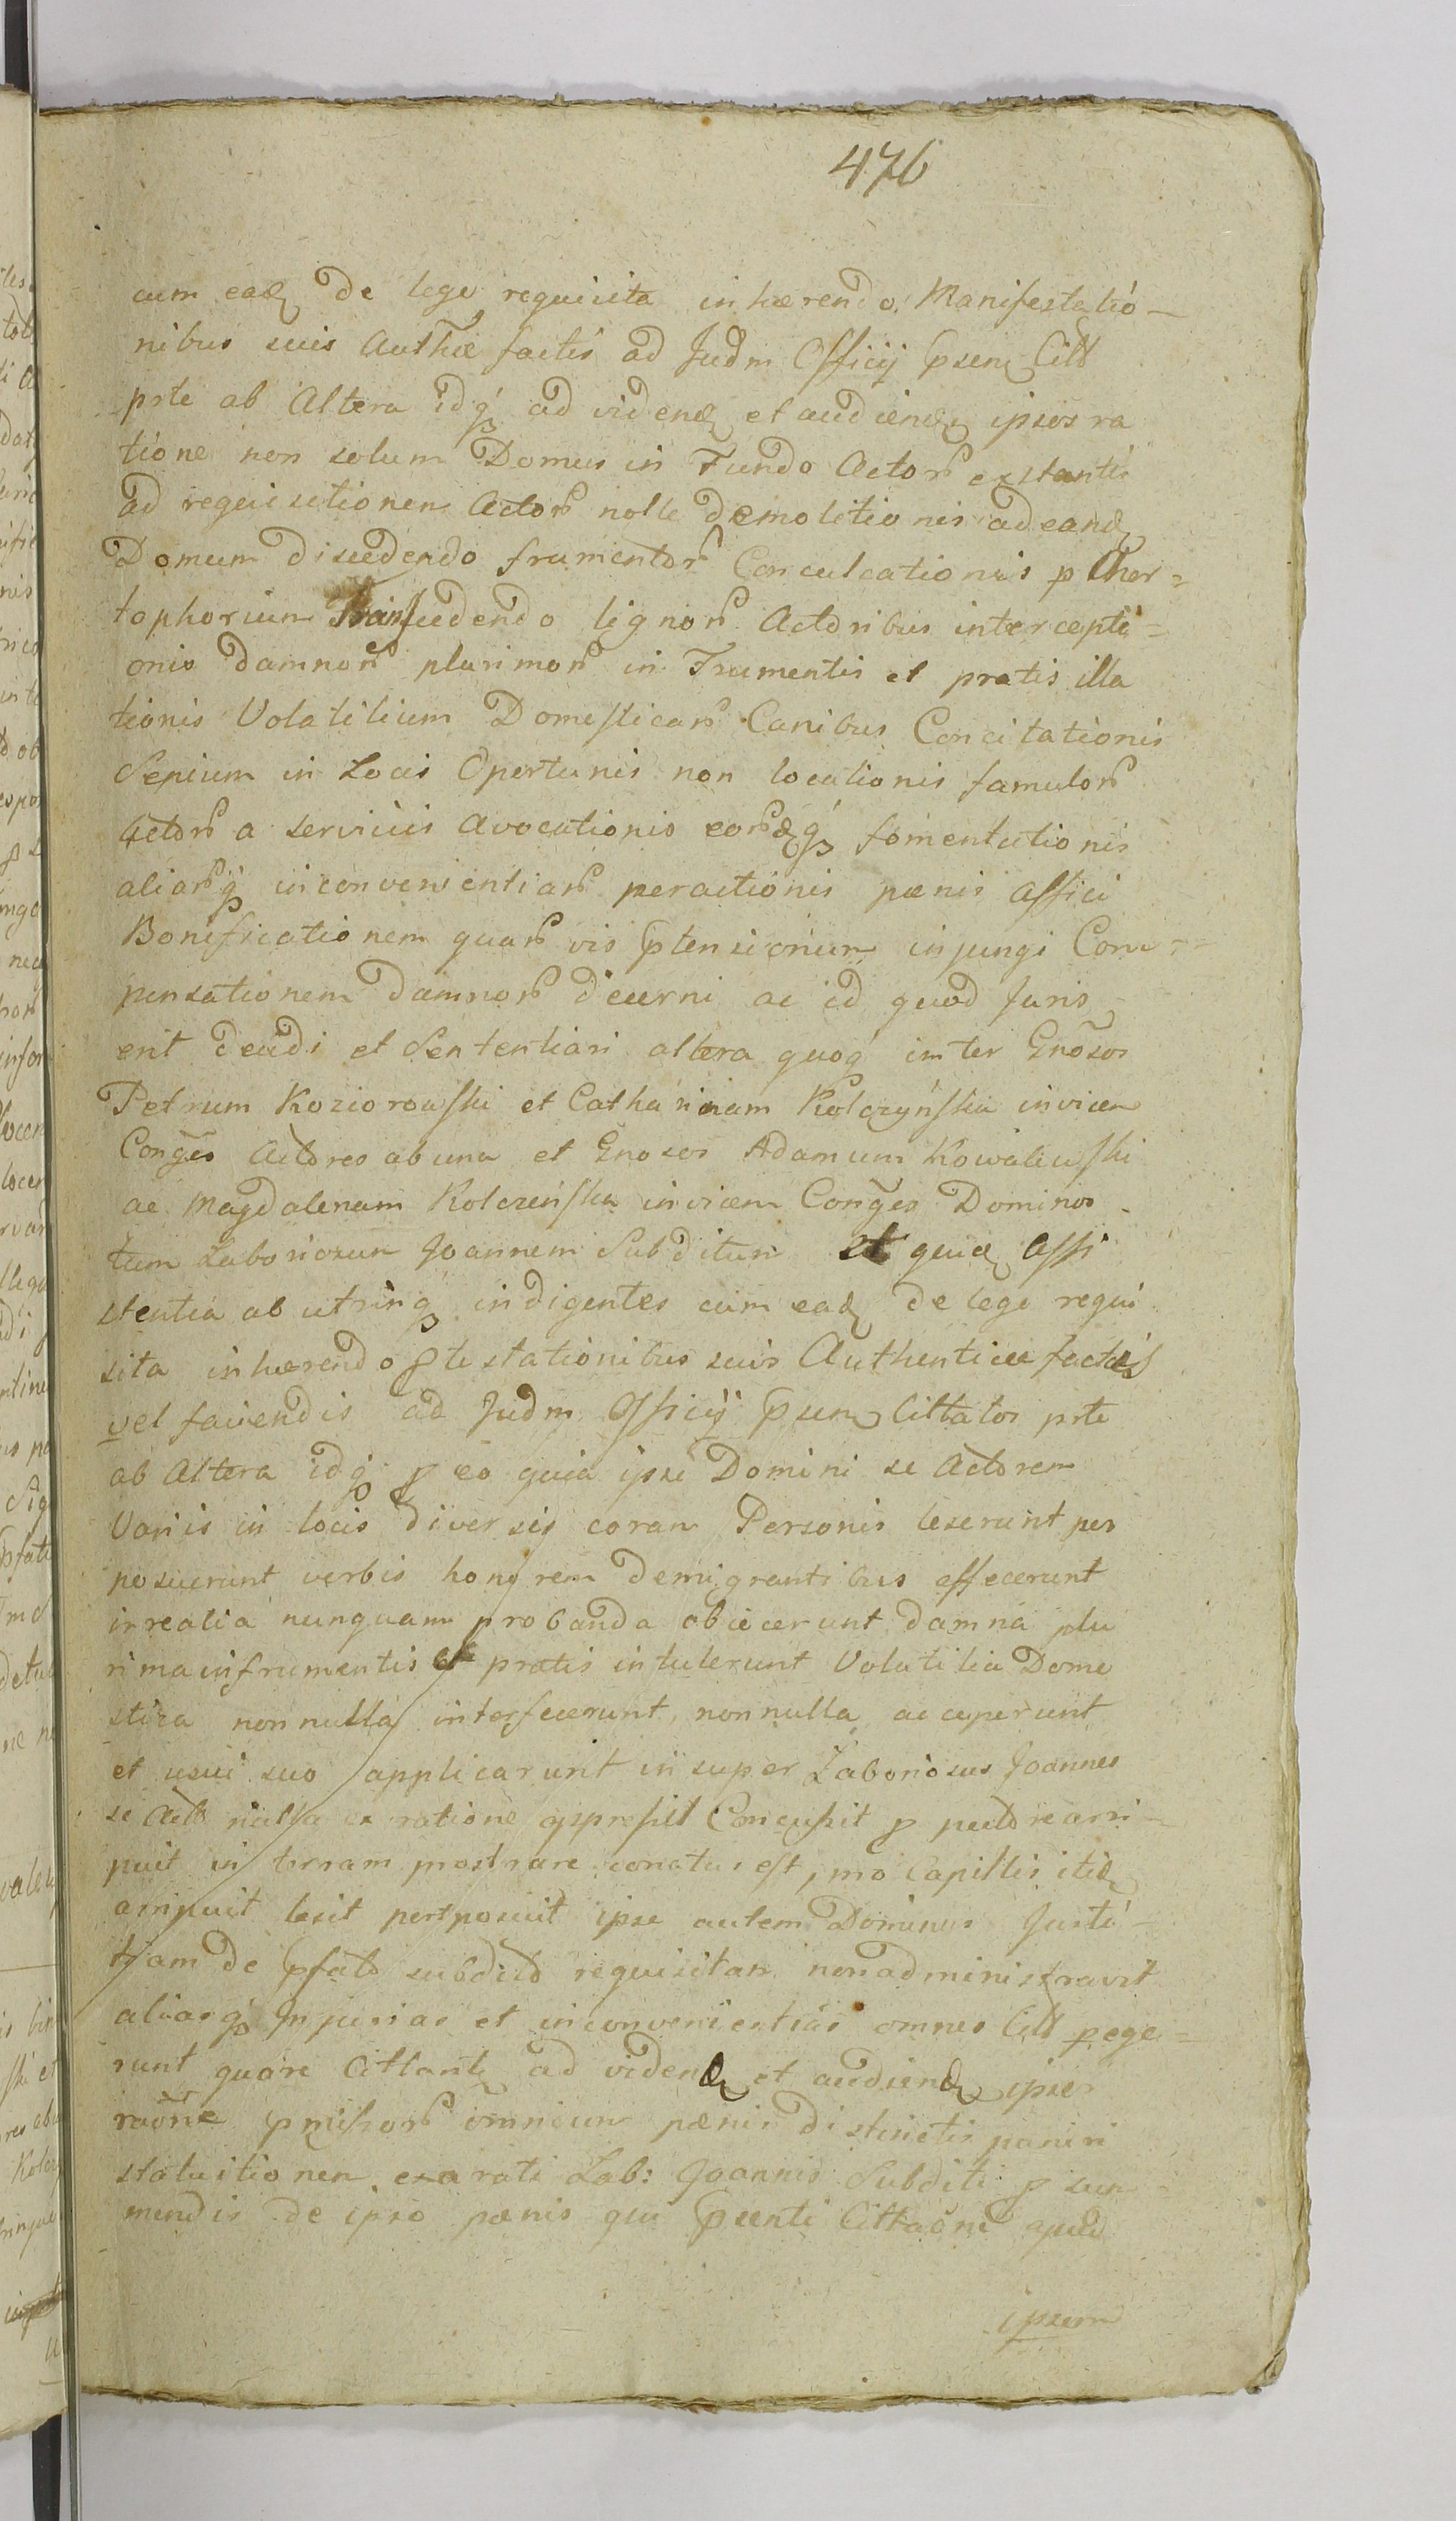 476
cum eadę de lege requisita inhærendo Manifestatio-
nibus suis Authæ factis ad Judm Officij psenę Citt
prte ab Altera idq ad videndę et audiendę ipsos ra
tione non solum Domus in Fundo Actorr exstantis
ad requisitionem Actorr nolle demolitionis ad eandę
Domum discedendo frumentorr Conculcationis p Chor=
tophorium Transeedendo lignorr Actoribus intercepti=
onis damnorr plurimorr in Frumentis et pratis illa
tionis Volatilium Domesticarr Canibus Concitationis
Sepium in Locis Opertunis non locationis famulorr
Actorr a serviciis Avocationis eorrdęq fomentationis
aliarrq inconvenientiarr peractionis pænis affici
Bonificationem quarr vis ptensionum injungi Com-
pensationem damnorr decerni ac id quod Juris
erit decidi et Sententiari altera quoq inter Gnõsos
Petrum Koziorowski et Catharinam Kolczyńska invicem
Conges Actores ab una et Gnosos Adamum Kowalewski
ac Magdalenam Kolczeńska invicem Conges Dominos
tum Laboriosum Joannem Subditum et quidę Assi
stentia ab utrinq indigentes cum eadę de lege requi
sita inhærendo Ptestationibus suis Authenticæ factis
vel faciendis ad Judm Officij psenę Cittatos prte
ab Altera idq p eo quia ipsi Domini se Actorem
Variis in locis diversis coram Personis leserunt per
posuerunt verbis honorem demigrantibus affecerunt
irrealia nunquam probanda obiecerunt damna plu
rima in frumentis et pratis intulerunt Volatilia Dome
stica nonnulla interfecerunt, nonnulla acceperunt
et usui suo applicarunt in super Laboriosus Joannes
se Act nulla ex ratione appressit Concussit p pectore arri-
puit in terram prostrare conatus est, imo Capillis itidę
arripuit lesit pertposuit ipse autem Dominus Justi-
tiam de pfato subdito requisitam non administravit
aliasq Injurias et inconvenientias omnes Citt pege=
runt quare Cittantę ad vidend et audiend ipsos
raõne pmissorr omnium pænis districtis paniri
statuitionem exarati Lab: Joannis Subditi p sum=
mendis de ipso pænis qui pnti Cittaõne apud
ipsum